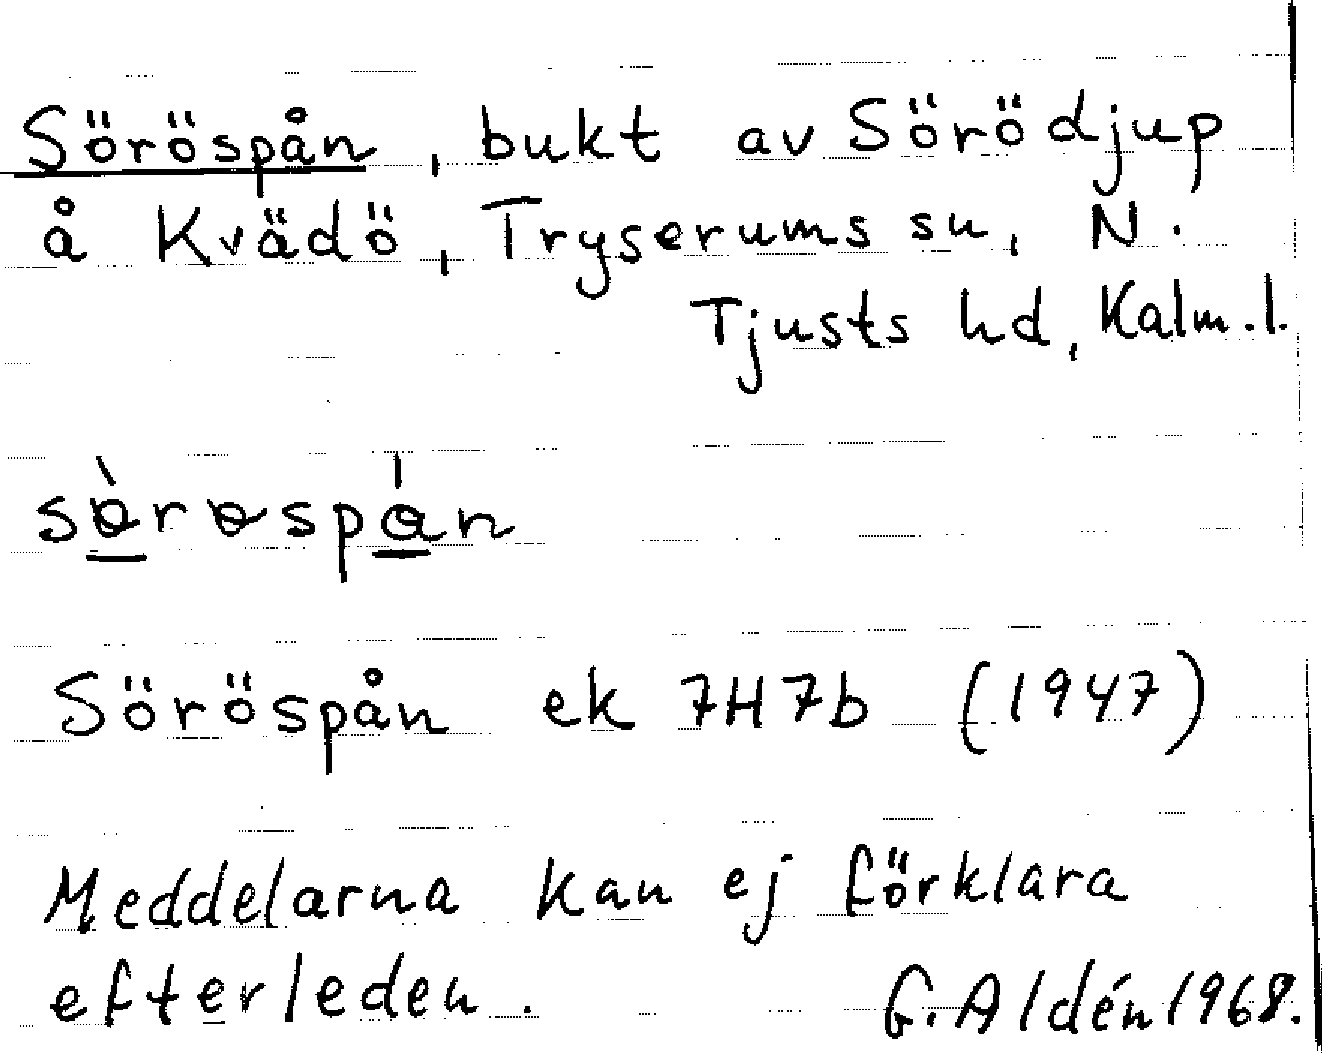 Söröspån, bukt av Sörödjup
å Kvädö, Tryserums sn, N.
Tjusts hd, Kalm.l.
Söröspån ek 7H7b (1947)
Meddelarna kan ej förklara
efterleden. G. Aldén 1968.